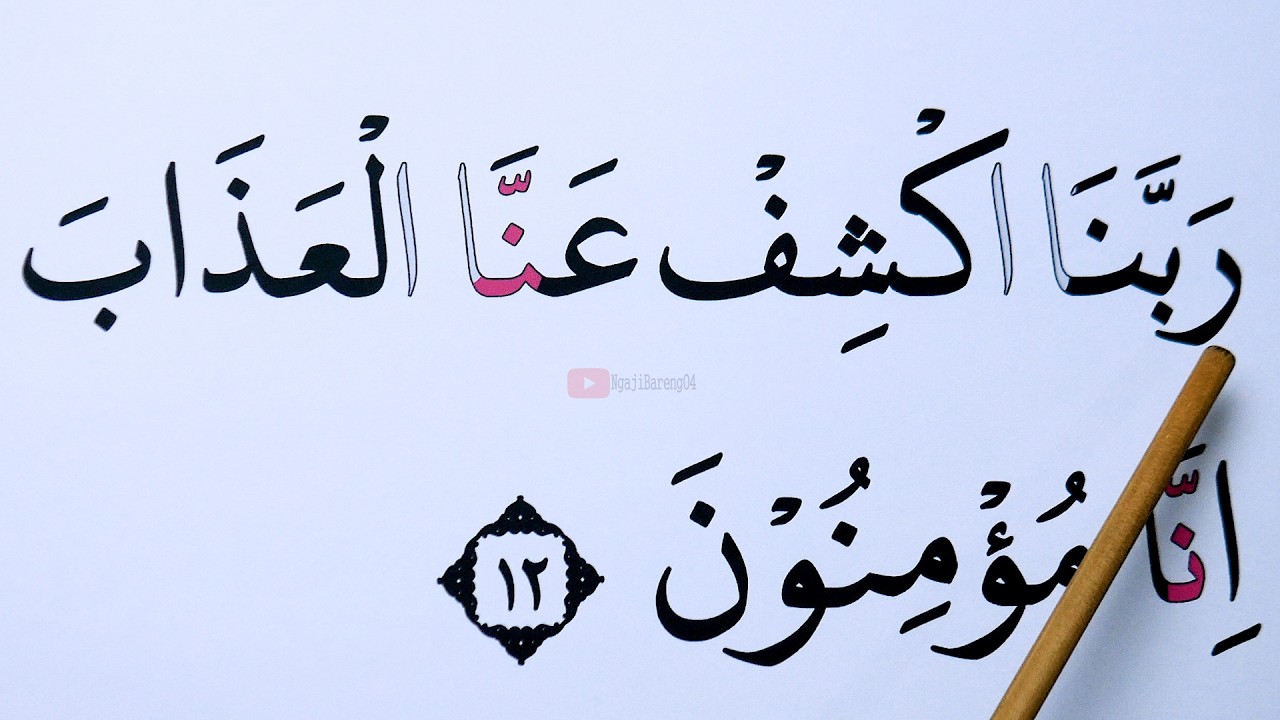 رَبَّنَا اكْشِفْ عَنَّا الْعَذَابَ
NgajiBareng04
اِنَّا مُؤْمِنُوْنَ ١٢